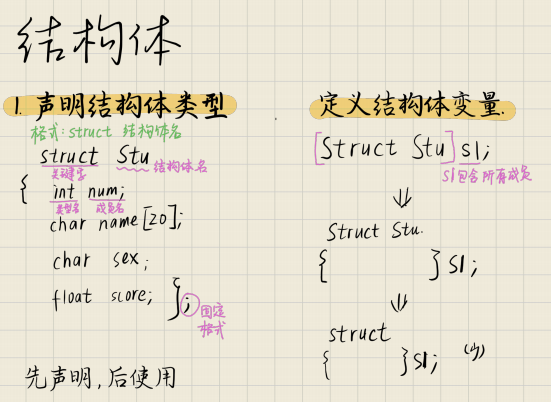 结构体
1. 声明结构体类型
格式: struct 结构体名
struct Stu
关键字
结构体名
{ int num;
类型名 成员名
char name[20];
char sex;
float score; };
固定
格式
先声明,后使用
定义结构体变量.
[Struct Stu] s1;
s1包含所有成员
Struct Stu.
{ } s1;
struct
{ } s1;